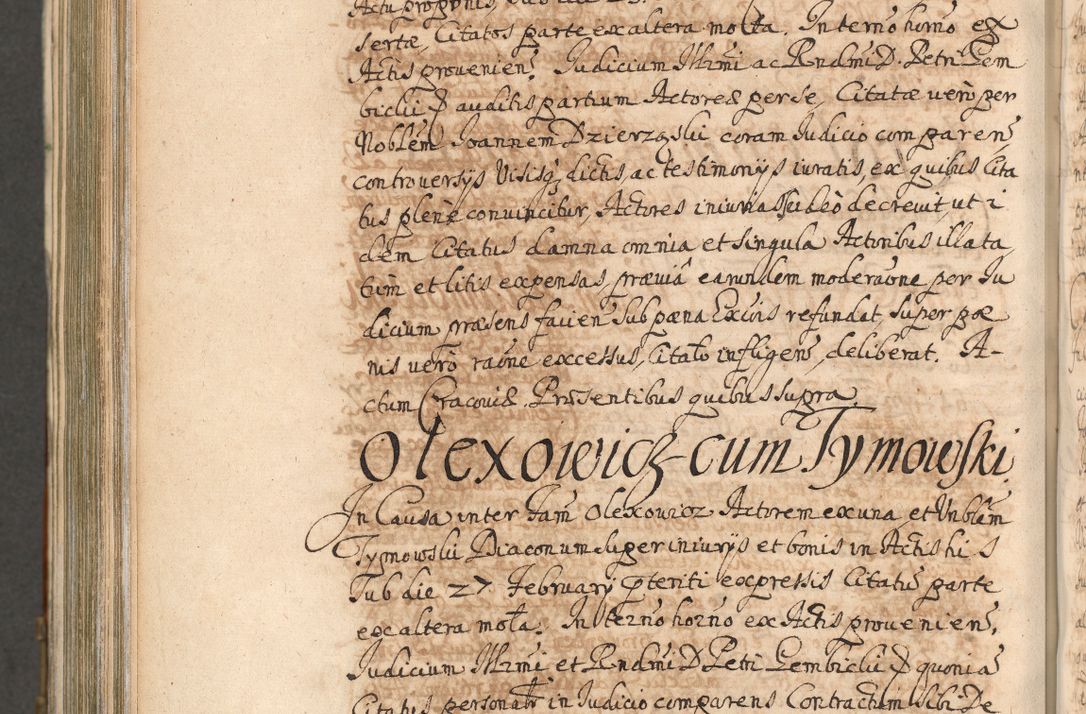 sertæ, Citatos parte ex altera mota. In termo horno ex
Actis provenien. Judicium Illrmi ac Rndmi D. Petri Gem
biclii P auditis partium Actoreæ per se, Citatæ vero per
Noblem Joannem Dzierzgski coram Judicio comparen
controversijs Visisq dictis ac testimonijs iuratis, ex quibus Cita
tus plene convincitur, Actores iniuriasse ideo decrevit, ut i
dem Citatus damna omnia et singula Actoribus illata
tum et litis expensas, prævia earundem moderaone per Ju
dicium præsens facien sub pæna Excois refundat, super pæ
nis vero raone excessus, Citato infligen, deliberat. A-
ctum Cracoviæ. Præsentibus quibus supra.
Olexowicz cum Tymowski.
In Causa inter Fam Olexowicz Actorem ex una, et Vnblem
Tymowski Diaconum super iniurijs et bonis in Actis hi s
sub die 27 February pteriti expressis Citatum parte
ex altera mota. In termo horno ex Actis provenien.
Judicium Illrmi et Rndmi D Petri Gembiclii P quonia
Citatus personatr in Judicio comparens Contractum sibi De